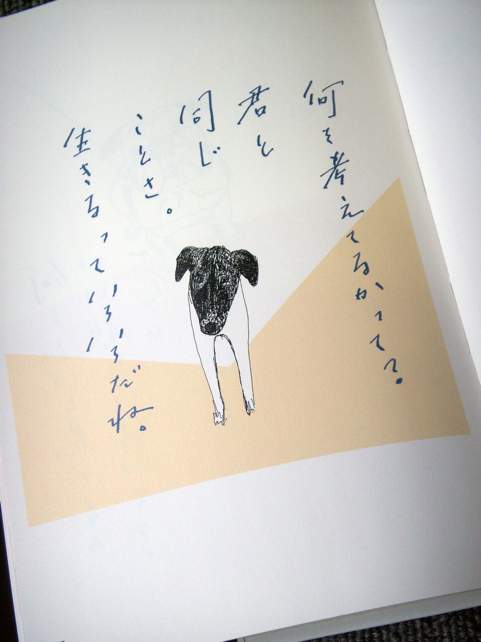 何を考えてるかってて。
君と
同じ
ことさ。
生きるっていろいろだね。